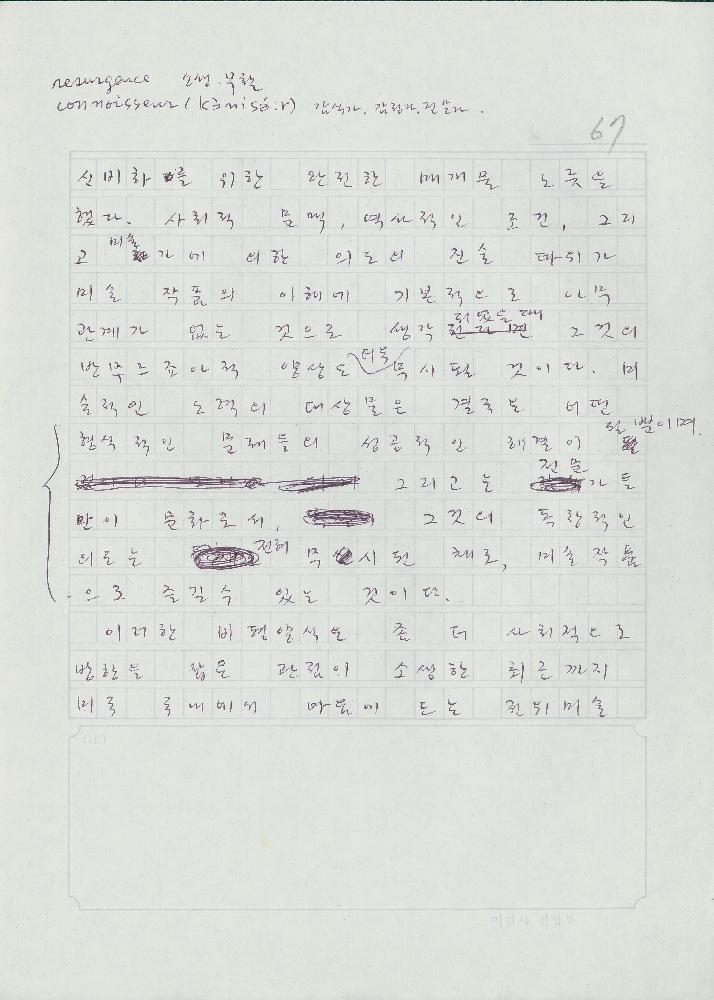 resurgence 소생. 부활
connoisseur (kànisə́:r) 감식가. 감정가, 전문가.
67
신비화를 위한 완전한 매개물 노릇을
했다. 사회적 문맥, 역사적인 조건, 그리
고 미술가에 의한 의도의 진술 따위가
미술 작품의 이해에 기본적으로 아무
관계가 없는 것으로 생각되었을 때 그것의
반부르죠아적 양상도 더욱 무시될 것이다. 미
술적인 노력의 대상물은 결국 어떤
형식적인 문제들의 성공적인 해결이 될 뿐이며
그리고는 전문가들
만이 문화로서, 그것의 독창적인
의도는 전혀 무시된 채로, 예술작품
으로 즐길 수 있는 것이다.
이러한 비평양식은 좀 더 사회적으로
방향을 잡은 관점이 소생한 최근까지
미국 국내에서 마음에 드는 전위미술